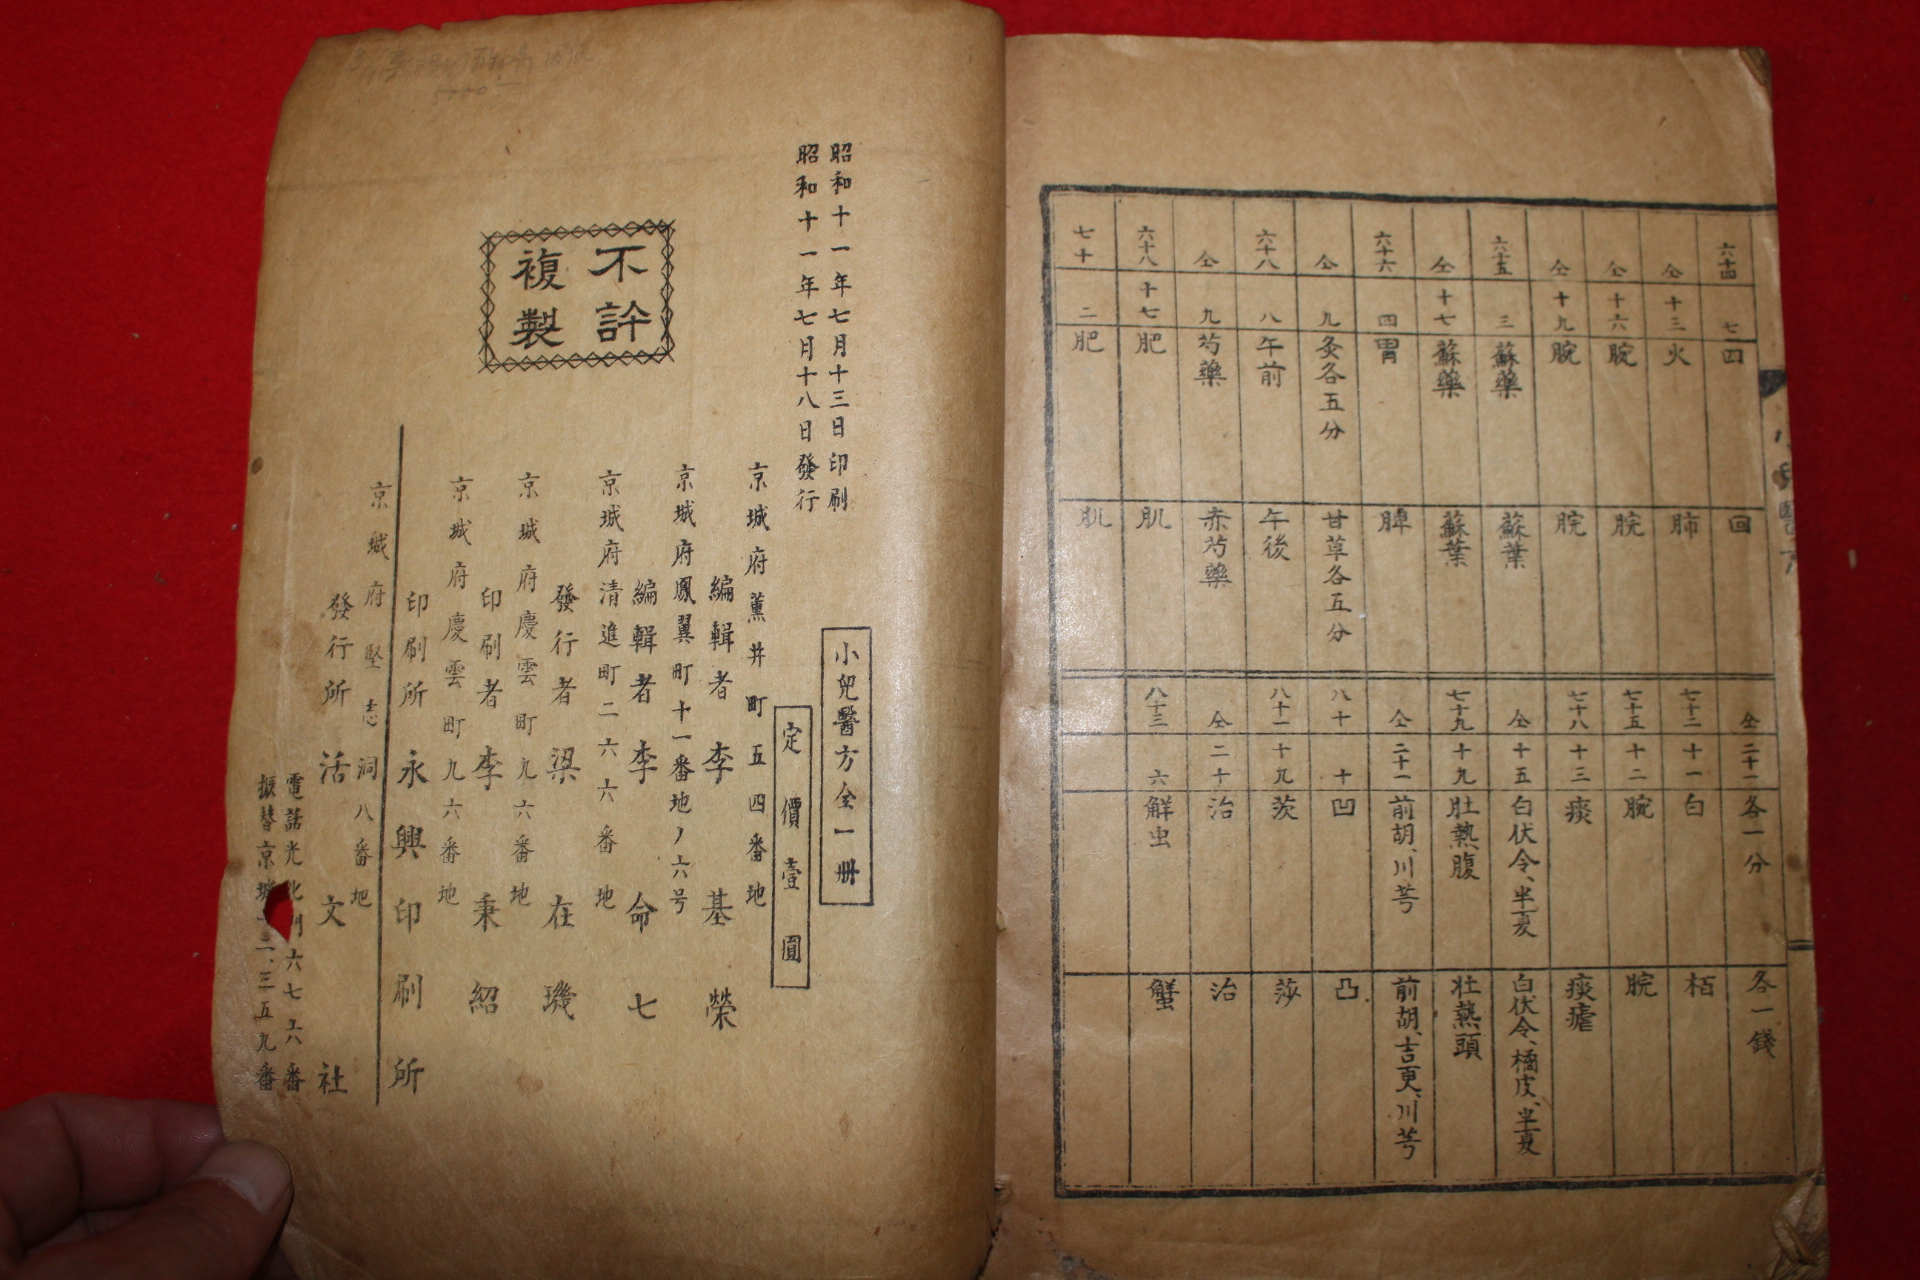 六十四 七 四 回
仝 十三 火 肺
仝 十六 腕 脘
仝 十九 腕 脘
六十五 三 蘇藥 蘇葉
仝 十七 蘇藥 蘇葉
六十六 四 胃 脾
仝 九 灸各五分 甘草各五分
六十八 八 午前 午後
仝 九 芍藥 赤芍藥
六十八 十七 肥 肌
七十 二 肥 肌
仝 二十一 各一分 各一錢
七十二 十一 白 栢
七十五 十二 腕 脘
七十八 十三 痰 痰瘧
仝 十五 白伏令、半夏 白伏令、橘皮、半夏
七十九 十九 肚熱腹 壮熱頭
仝 二十一 前胡、川芎 前胡、吉更、川芎
八十 十 凹 凸
八十一 十九 茨 莎
仝 二十 治 治
八十三 六 鮮虫 蟹
小兒醫方
昭和十一年七月十三日印刷
昭和十一年七月十八日發行
不許
複製
小兒醫方全一冊
定價壹圓
京城府薫井町五四番地
編輯者 李基榮
京城府鳳翼町十一番地ノ六号
編輯者 李命七
京城府清進町二六六番地
發行者 梁在璣
京城府慶雲町九六番地
印刷者 李秉紹
京城府慶雲町九六番地
印刷所 永興印刷所
京城府堅志洞八番地
發行所 活文社
電話光化門六七六番
振替京城一二、三五九番